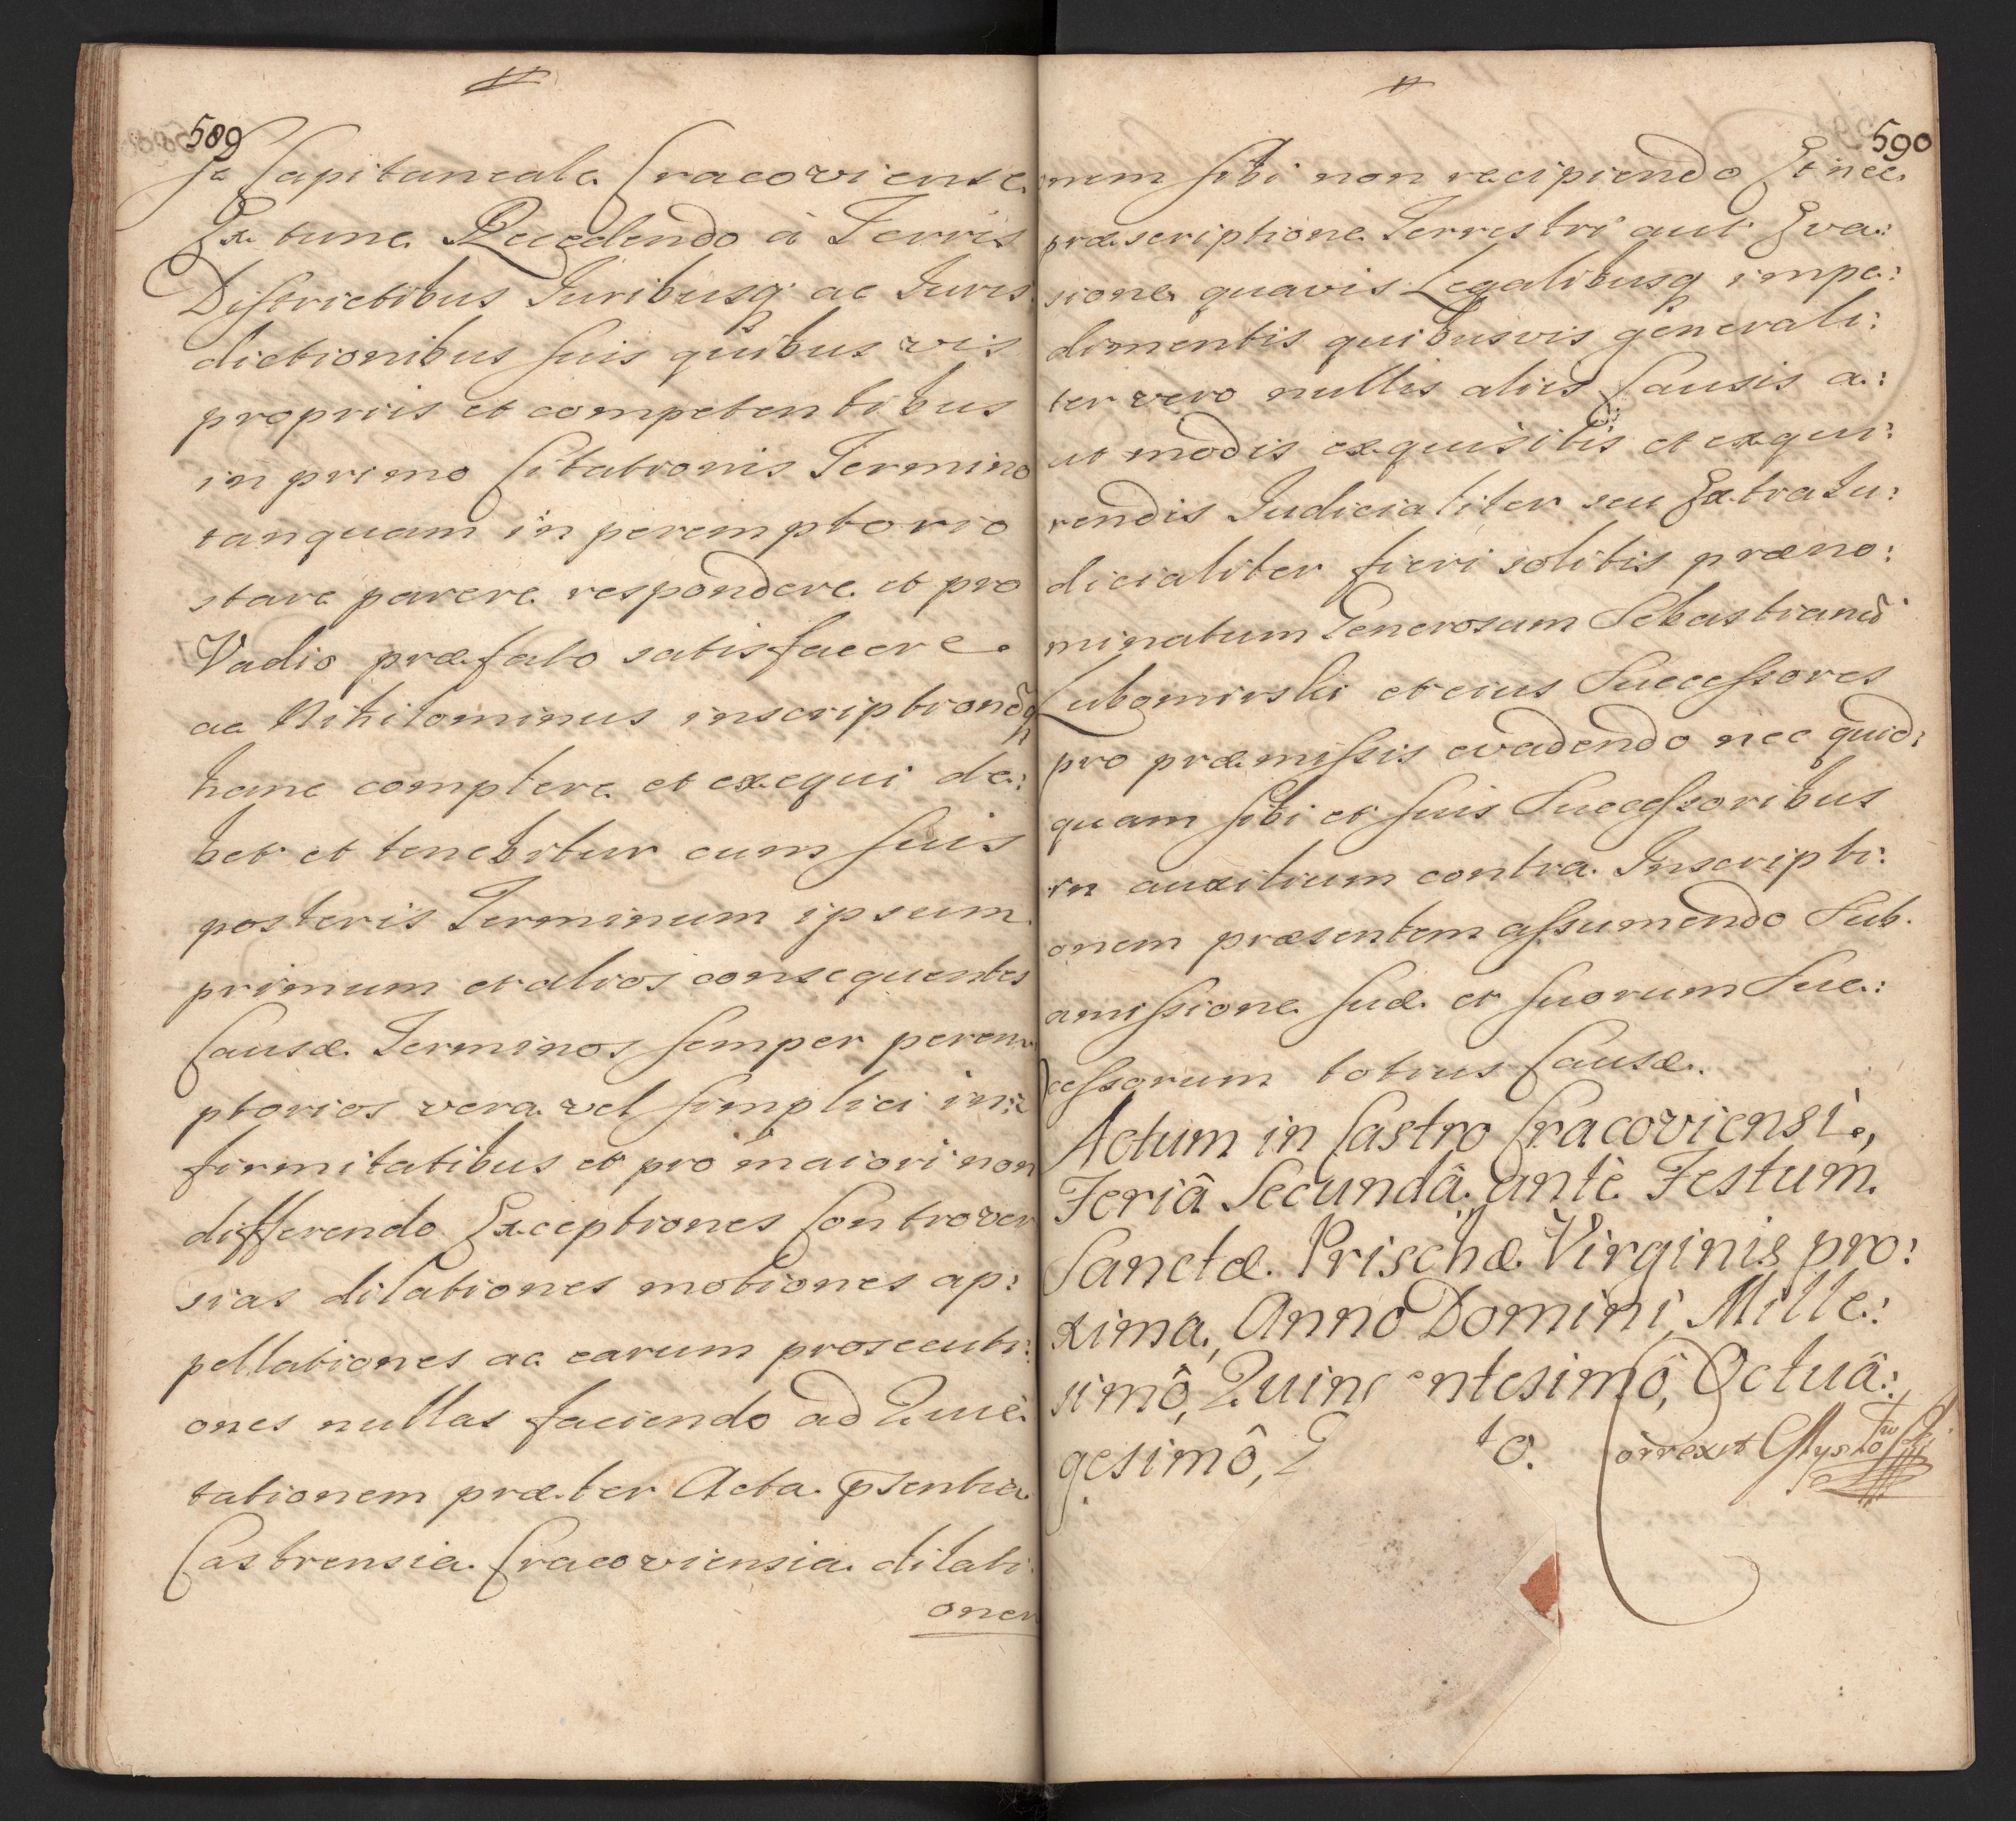 589
se Capitaneale Cracoviense
Ex tunc Recedendo à Terris
Districtibus Juribusq; ac Juris
dictionibus suis quibus vis
propriis et competentibus
in primo Citationis Termino
tanquam in peremptorio
stare parere respondere et pro
Vadio præfato satisfacere
ac Nihilominus inscriptionē
hanc complere et exequi de:
bet et tenebitur cum suis
posteris Terminum ipsum
primum et alios consequentes
Causæ Terminos semper perem
ptorios vera vel simplici in:
firmitatibus et pro maiori non
differendo Exceptiones Controver
sias dilationes motiones ap:
pellationes ac earum prosecuti:
ones nullas faciendo ad Quie
tationem præter Acta psentia
Castrensia Cracoviensia dilati
onem
590
nem sibi non recipiendo Et nec
præscriptione Terrestri aut Eva:
sione quavis Legalibusq impe:
dimentis quibusvis generali:
ter vero nullis aliis Causis a:
ut modis exquisitis et exqui:
rendis Judicialiter seu ExtraJu:
dicialiter fieri solitis præno:
minatum Generosum Sebastianū
Lubomirski et eius Successores
pro præmissis evadendo nec quid:
quam sibi et suis Successoribus
in auxilium contra Inscripti:
onem præsentem assumendo Sub
amissione suæ et suorum Suc:
cessorum totius Causæ.
Actum in Castro Cracoviensi,
Feriâ Secundâ ante Festum
Sanctæ Prischæ Virginis pro:
xima, Anno Domini Mille:
simô, Quin entesimô, Octuâ:
gesimô, Q to. Correxit